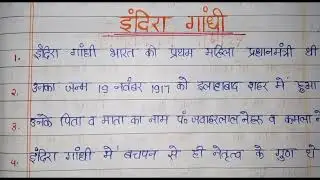 इंदिरा गांधी
1. इंदिरा गांधी भारत की प्रथम महिला प्रधानमंत्री थी
2. उनका जन्म 19 नवंबर 1917 को इलाहाबाद शहर में हुआ
3. उनके पिता व माता का नाम पं० जवाहरलाल नेहरु व कमला ने
4. इंदिरा गांधी में बचपन से ही नेतृत्व के गुण थे